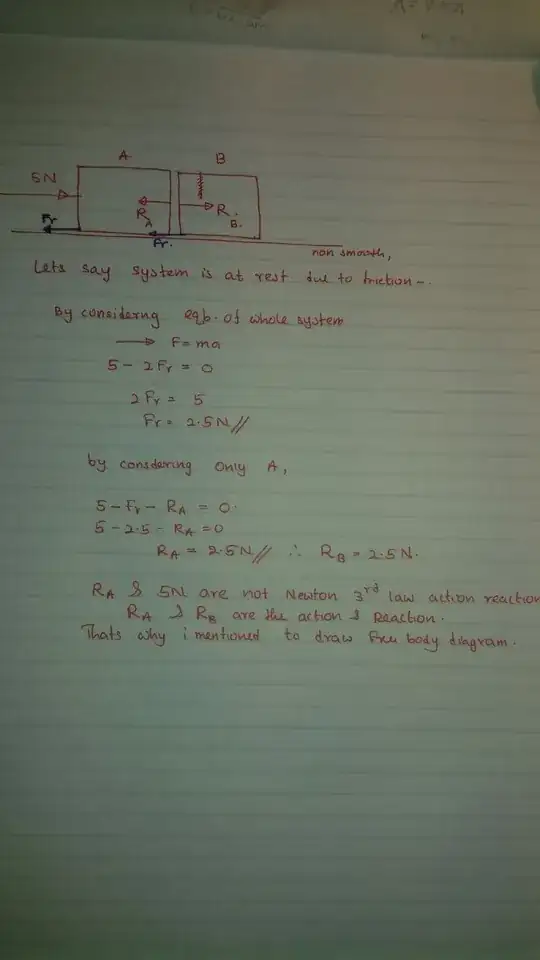 A
B
5N
Fr
RA
R.
B.
Fr.
non smooth,
Lets say system is at rest due to friction-.
By considerng eqb. of whole system
→ F=ma
5 - 2Fr = 0
2Fr = 5
Fr = 2.5N//
by consdering only A,
5-Fr-RA = 0.
5-2.5-RA=0
RA = 2.5N// ∴ RB = 2.5N.
RA & 5N are not Newton 3rd law action reaction
RA & RB are the action & Reaction.
Thats why i mentioned to draw Free body diagram.